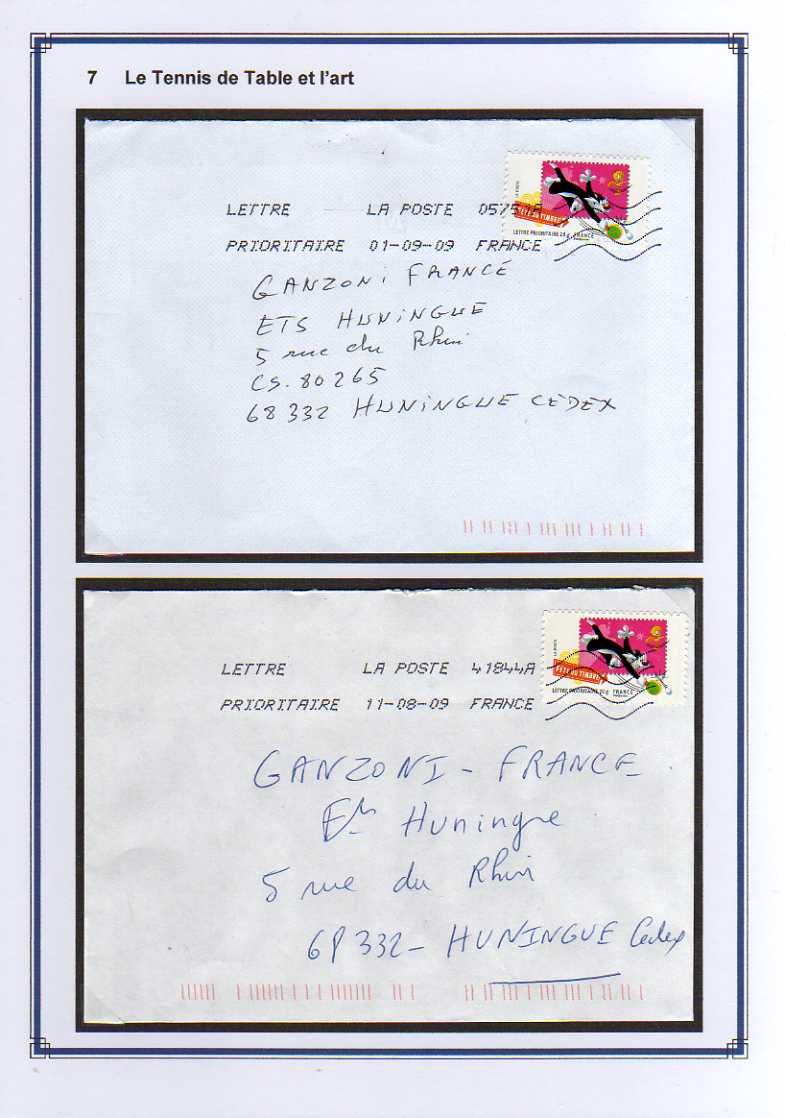 7 Le Tennis de Table et l'art
LA POSTE
FÊTE DU TIMBRE
LETTRE PRIORITAIRE 20 g FRANCE
LETTRE LA POSTE
PRIORITAIRE 01-09-09 FRANCE
GANZONi FRANCE
ETS HUNiNGUE
5 rue du Rhin
CS. 80265
68332 HUNiNGUE CEDEX
LA POSTE
FÊTE DU TIMBRE
LETTRE PRIORITAIRE 20 g FRANCE
LETTRE LA POSTE 41844A
PRIORITAIRE 11-08-09 FRANCE
GANZONI - FRANCE
Huningue
5 rue du Rhin
68332 - HUNINGUE Cedex